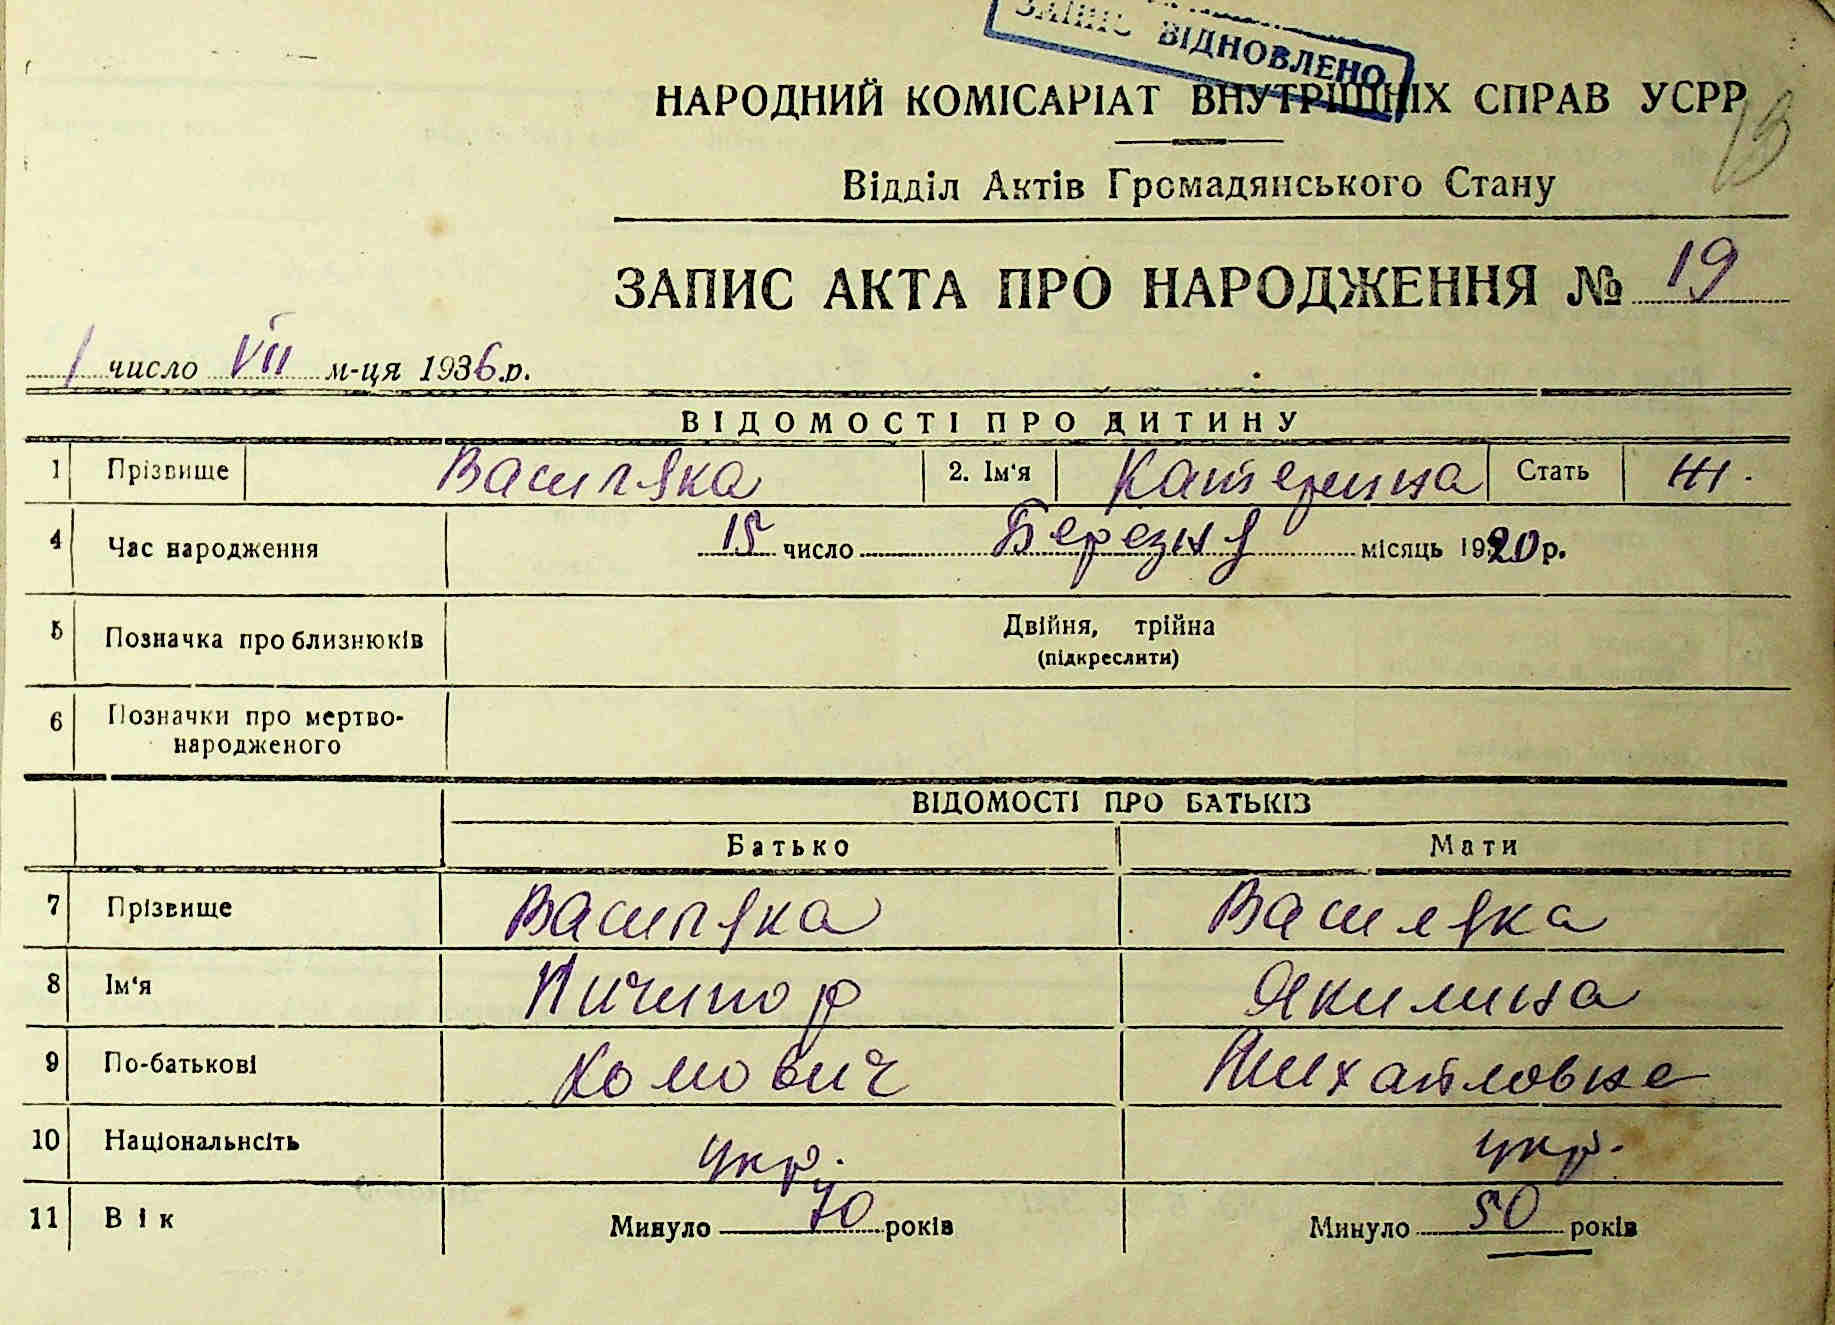 ЗАПИС ВІДНОВЛЕНО
НАРОДНИЙ КОМІСАРІАТ ВНУТРІШНІХ СПРАВ УСРР
13
Відділ Актів Громадянського Стану
ЗАПИС АКТА ПРО НАРОДЖЕННЯ № 19
1 число VII м-ця 1936 р.
ВІДОМОСТІ ПРО ДИТИНУ
1 Прізвище Василяка 2. Ім'я Катерина Стать Ж.
4 Час народження 15 число Березня місяць 1920 р.
5 Позначка про близнюків Двійня, трійна
(підкреслити)
6 Позначки про мертво-
народженого
ВІДОМОСТІ ПРО БАТЬКІВ
Батько Мати
7 Прізвище Василяка Василяка
8 Ім'я Ничипор Якилина
9 По-батькові Хомович Михайловна
10 Національнсіть укр. укр.
11 Вік Минуло 70 років Минуло 50 років